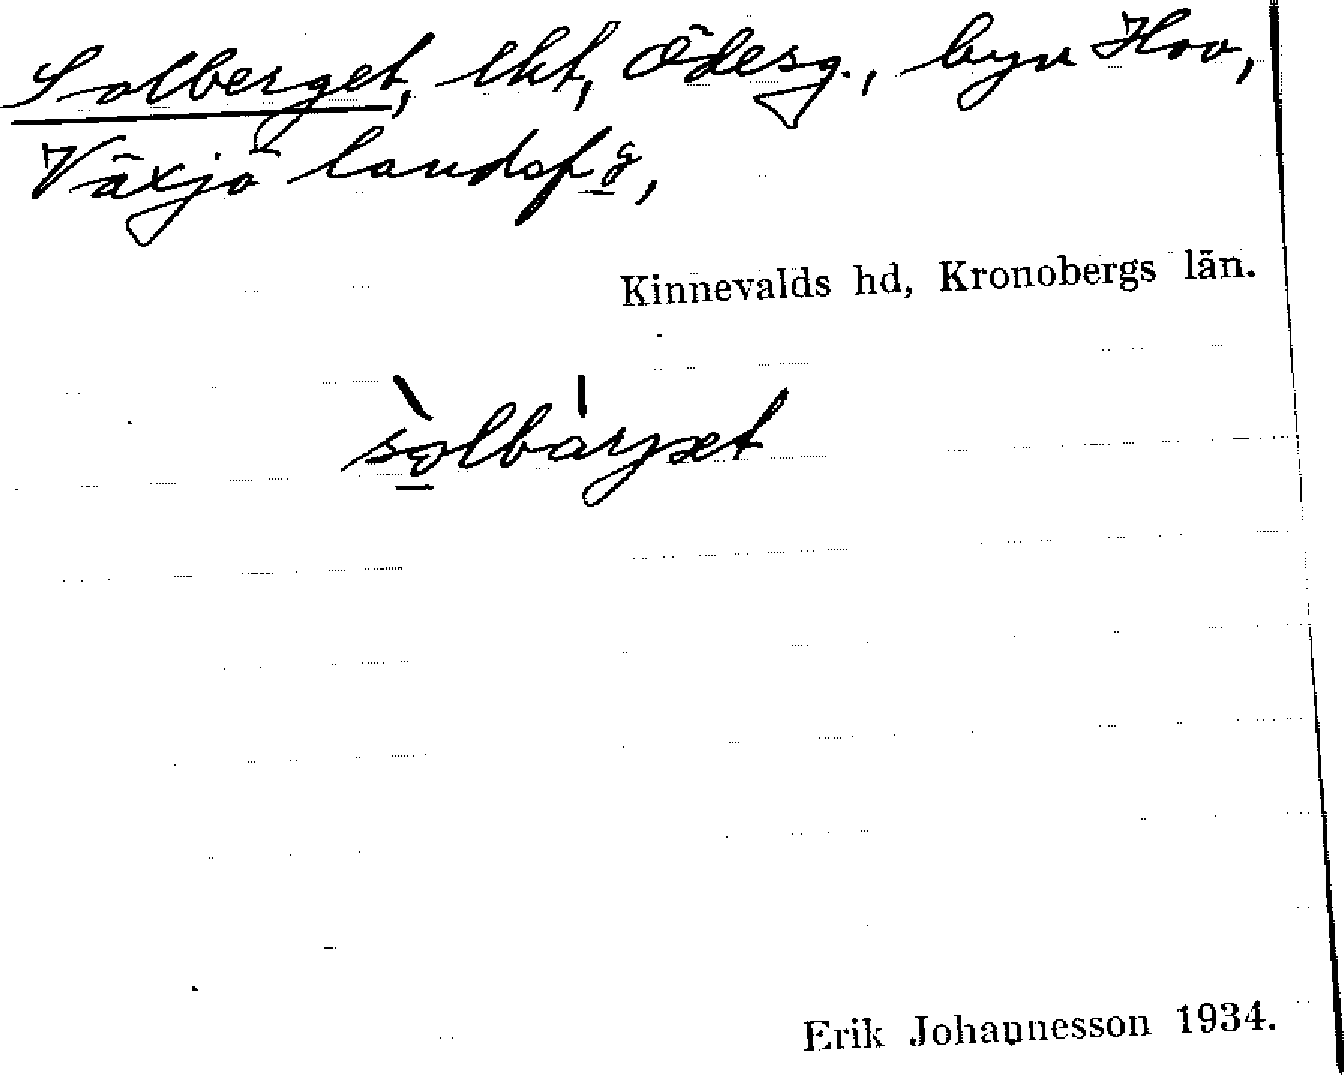 Solberget, lht, Ödesg., byn Hov,
Växjö landsfg,
Kinnevalds hd, Kronobergs län.
sòlbáryet
Erik Johannesson 1934.